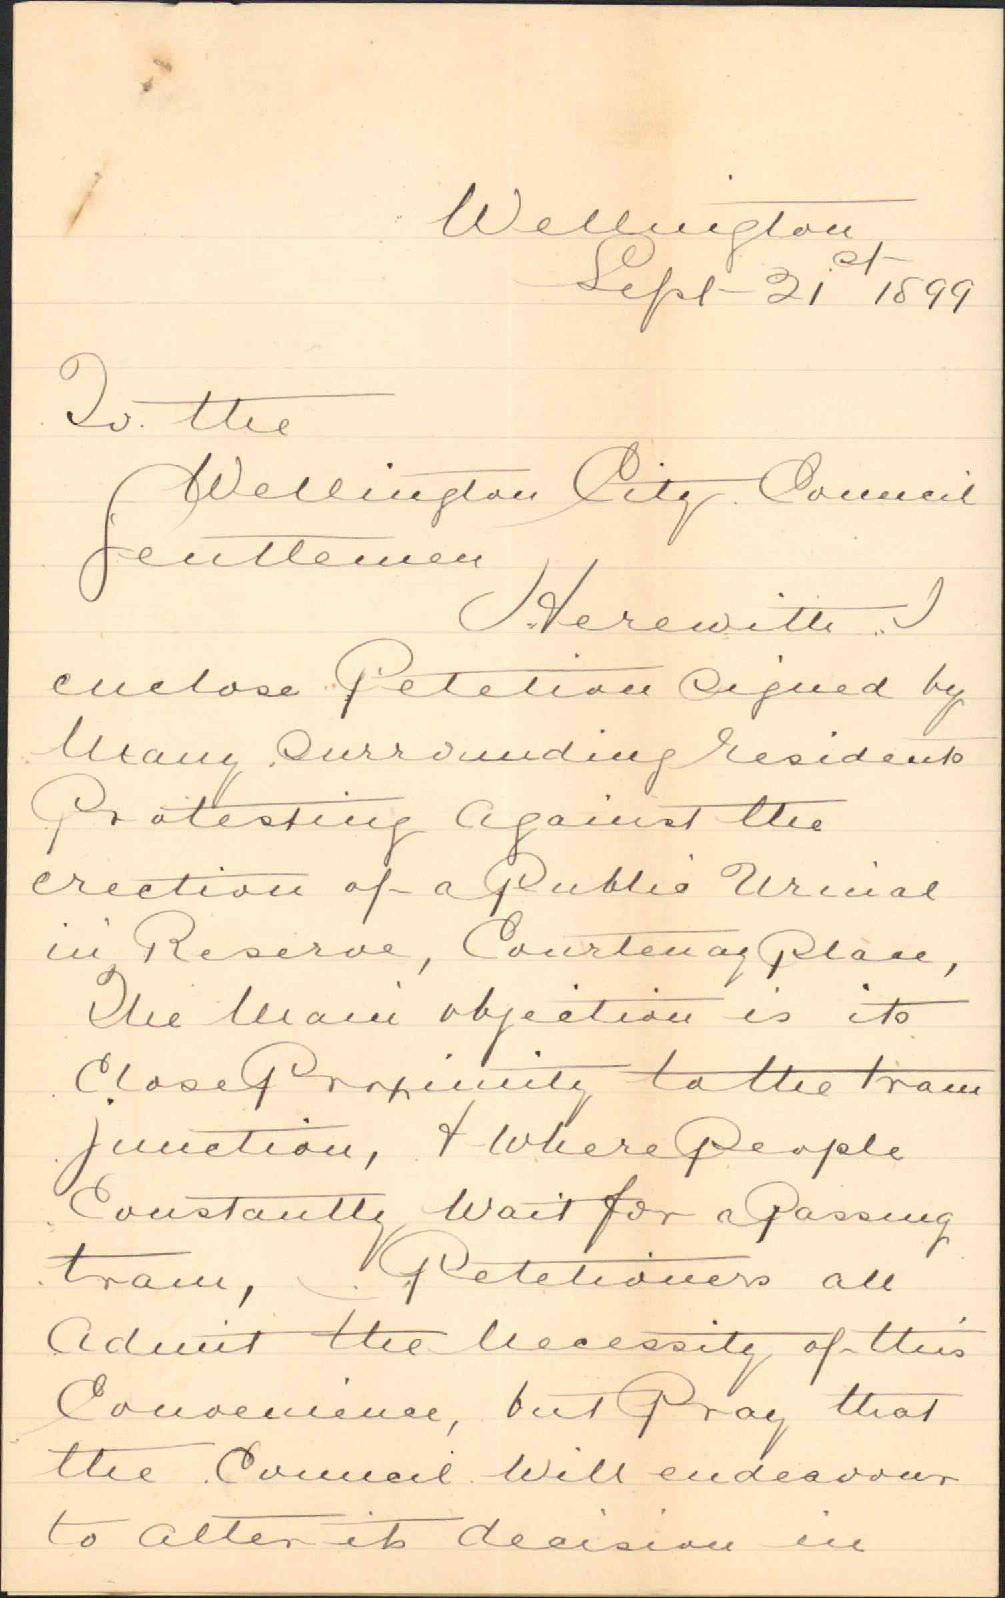 Wellington
Sept 21st 1899
To the
Wellington City Council
Gentlemen
Herewith I
enclose Petetion Signed by
Many Surrounding residents
Protesting Against the
erection of a Public Urinal
in Reserve, Courtenay Place,
The Main objection is its
Close Proximity to the tram
junction, & Where People
Constantly Wait for a Passing
tram, Petetioners all
Admit the Necessity of this
Convenience, but Pray that
the Council Will endeavour
to alter its decision in